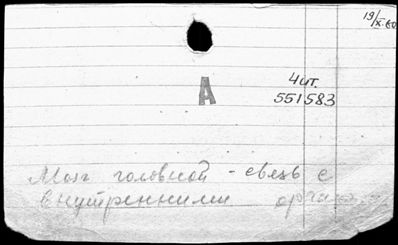 19/X.60
А
Чит.
551583
Мозг головной - связь с
внутренними орга